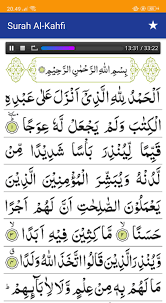 20.49
Surah Al-Kahfi
13:31 / 33:22
بِسْمِ اللّٰهِ الرَّحْمٰنِ الرَّحِيْمِ
اَلْحَمْدُ لِلّٰهِ الَّذِيْٓ اَنْزَلَ عَلٰى عَبْدِهِ
الْكِتٰبَ وَلَمْ يَجْعَلْ لَّهٗ عِوَجًا ۜ
قَيِّمًا لِّيُنْذِرَ بَأْسًا شَدِيْدًا مِّنْ
لَّدُنْهُ وَيُبَشِّرَ الْمُؤْمِنِيْنَ الَّذِيْنَ
يَعْمَلُوْنَ الصّٰلِحٰتِ اَنَّ لَهُمْ اَجْرًا
حَسَنًا ۙ مَّاكِثِيْنَ فِيْهِ اَبَدًا ۙ
وَّيُنْذِرَ الَّذِيْنَ قَالُوا اتَّخَذَ اللّٰهُ وَلَدًا
مَا لَهُمْ بِهٖ مِنْ عِلْمٍ وَّلَا لِاٰبَاۤىِٕهِمْ